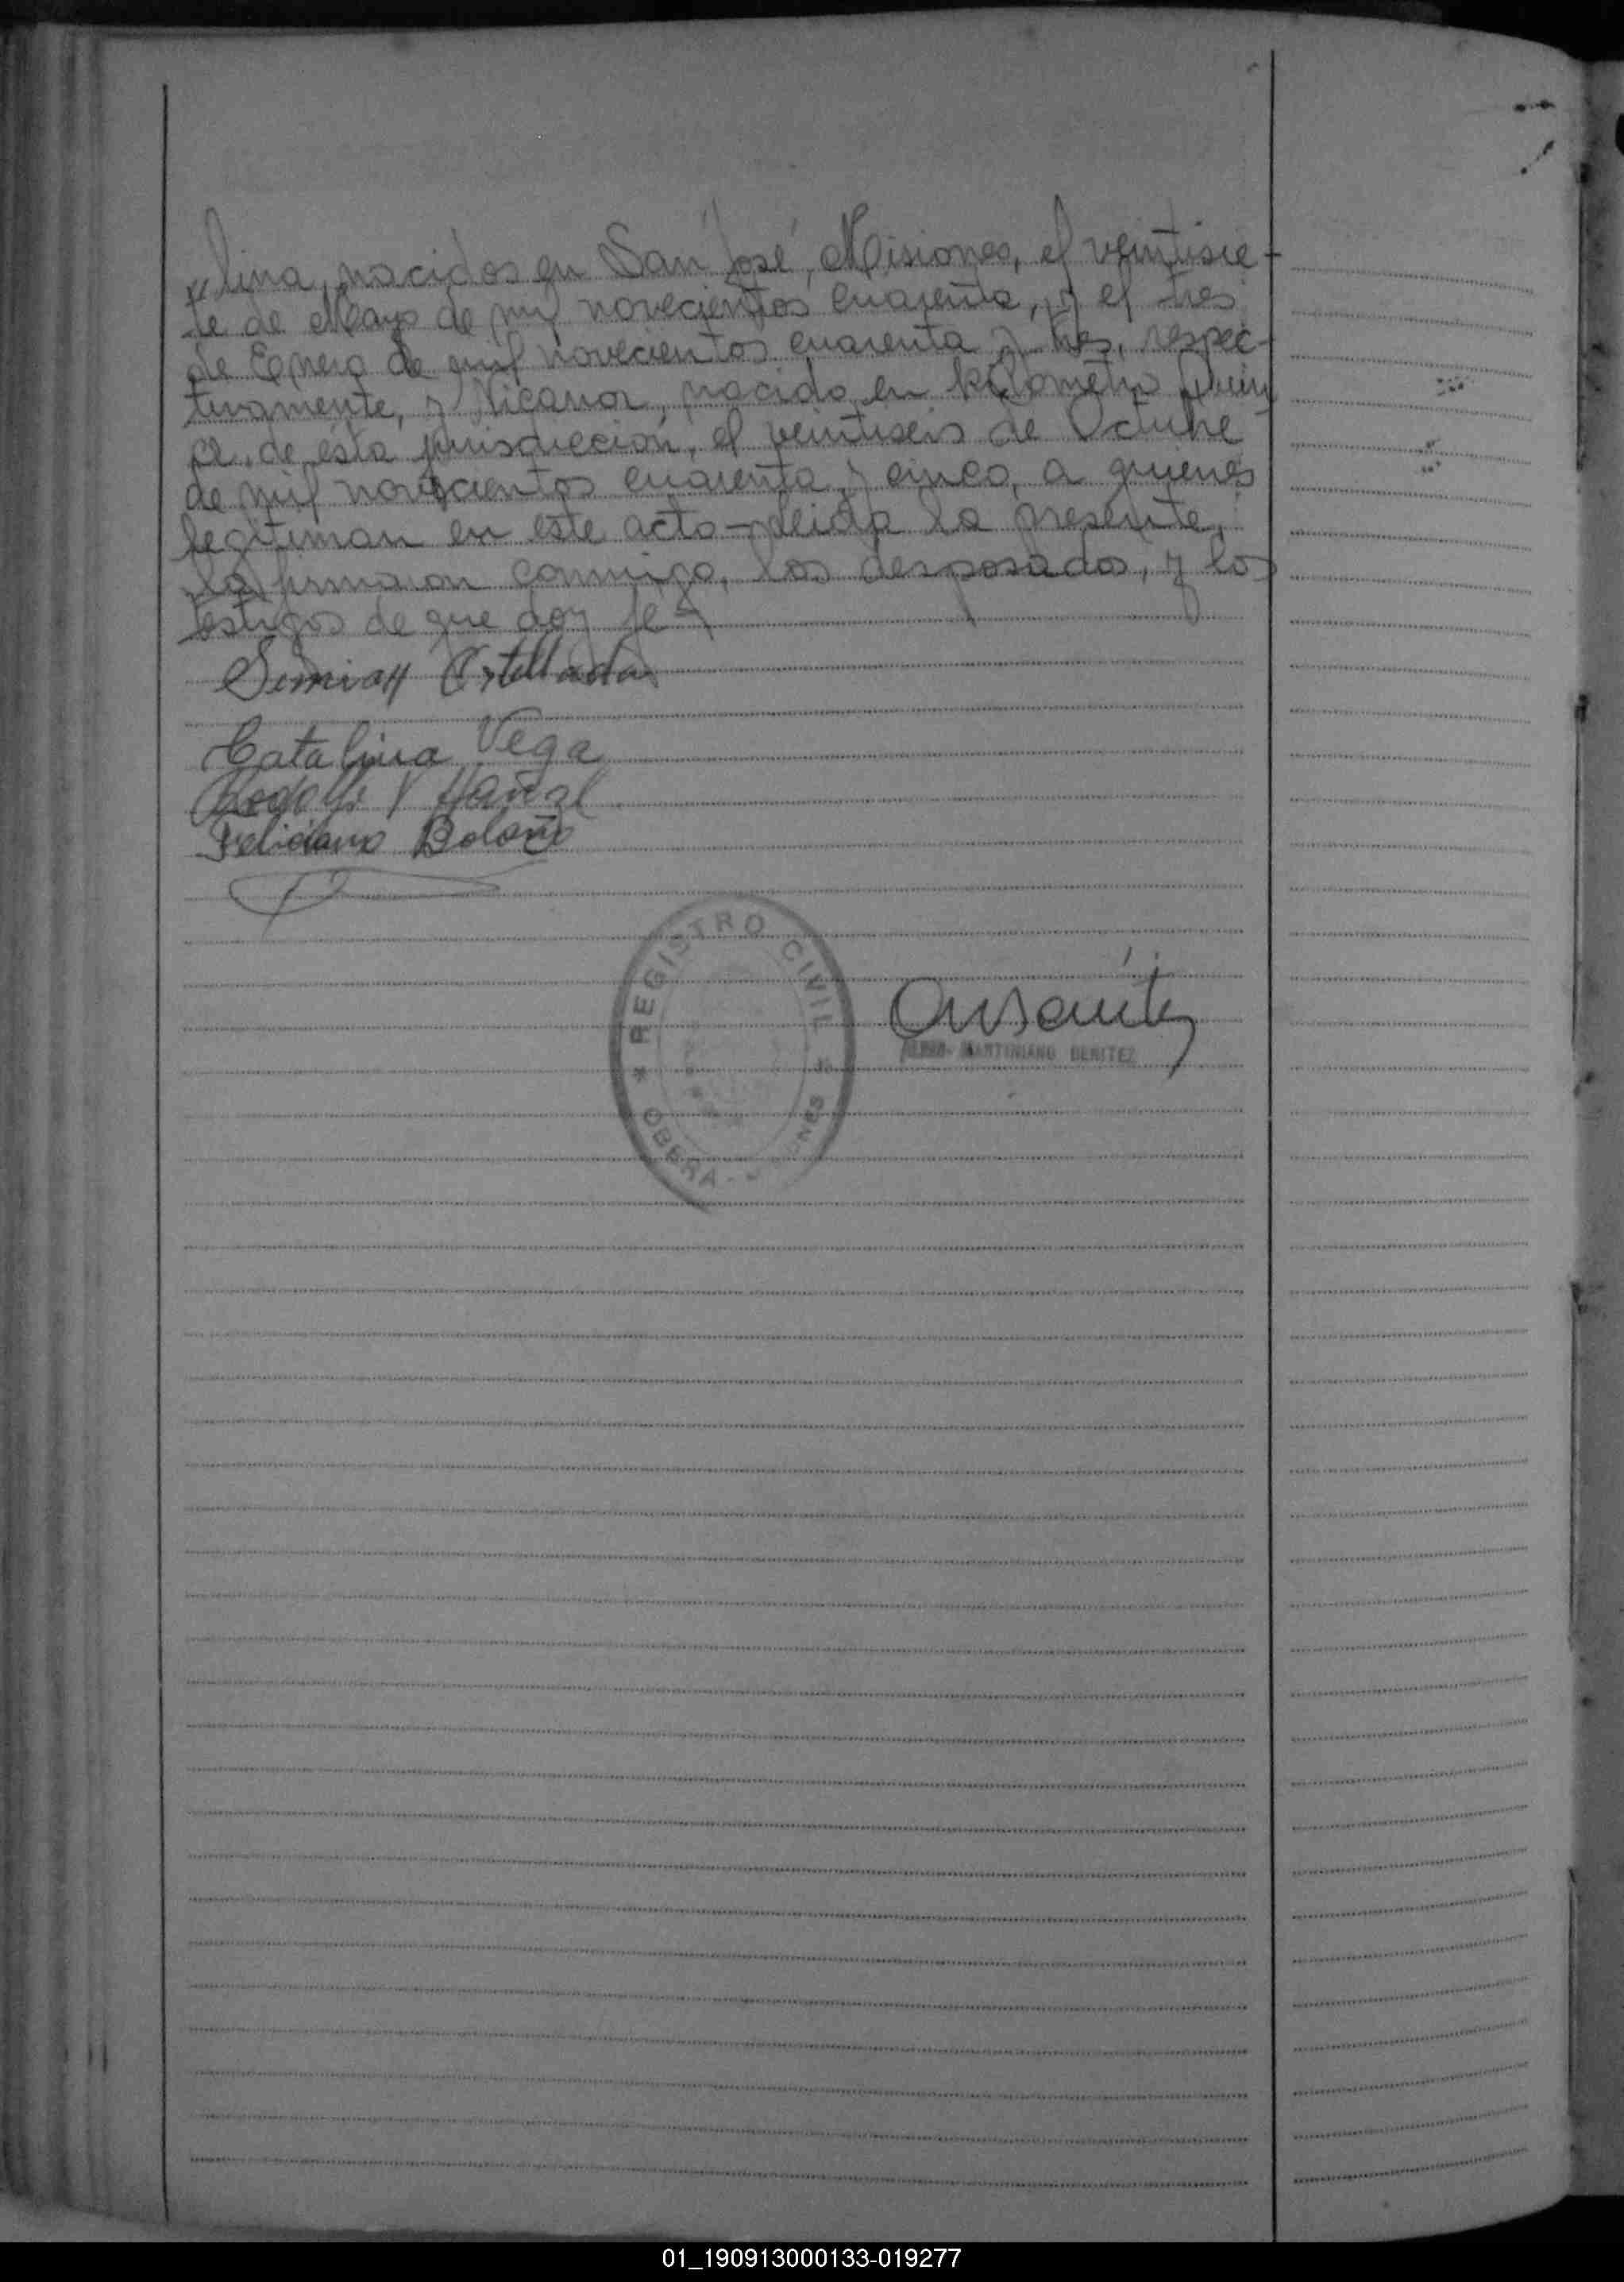 lina, nacidos en San José, Misiones, el veintisie-
te de Mayo de mil novecientos cuarenta, y el tres
de Enero de mil novecientos cuarenta y tres, respec-
tivamente, y Nicanor, nacido en kilómetro quin
ce, de ésta jurisdicción, el veintiseis de Octubre
de mil novecientos cuarenta y cinco, a quienes
legitiman en este acto - leida la presente,
la firmaron conmigo, los desposados, y los
testigos de que doy fe
Catalina Vega
Feliciano
REGISTRO CIVIL
OBERA -
MARTINIANO BENITEZ
01_190913000133-019277